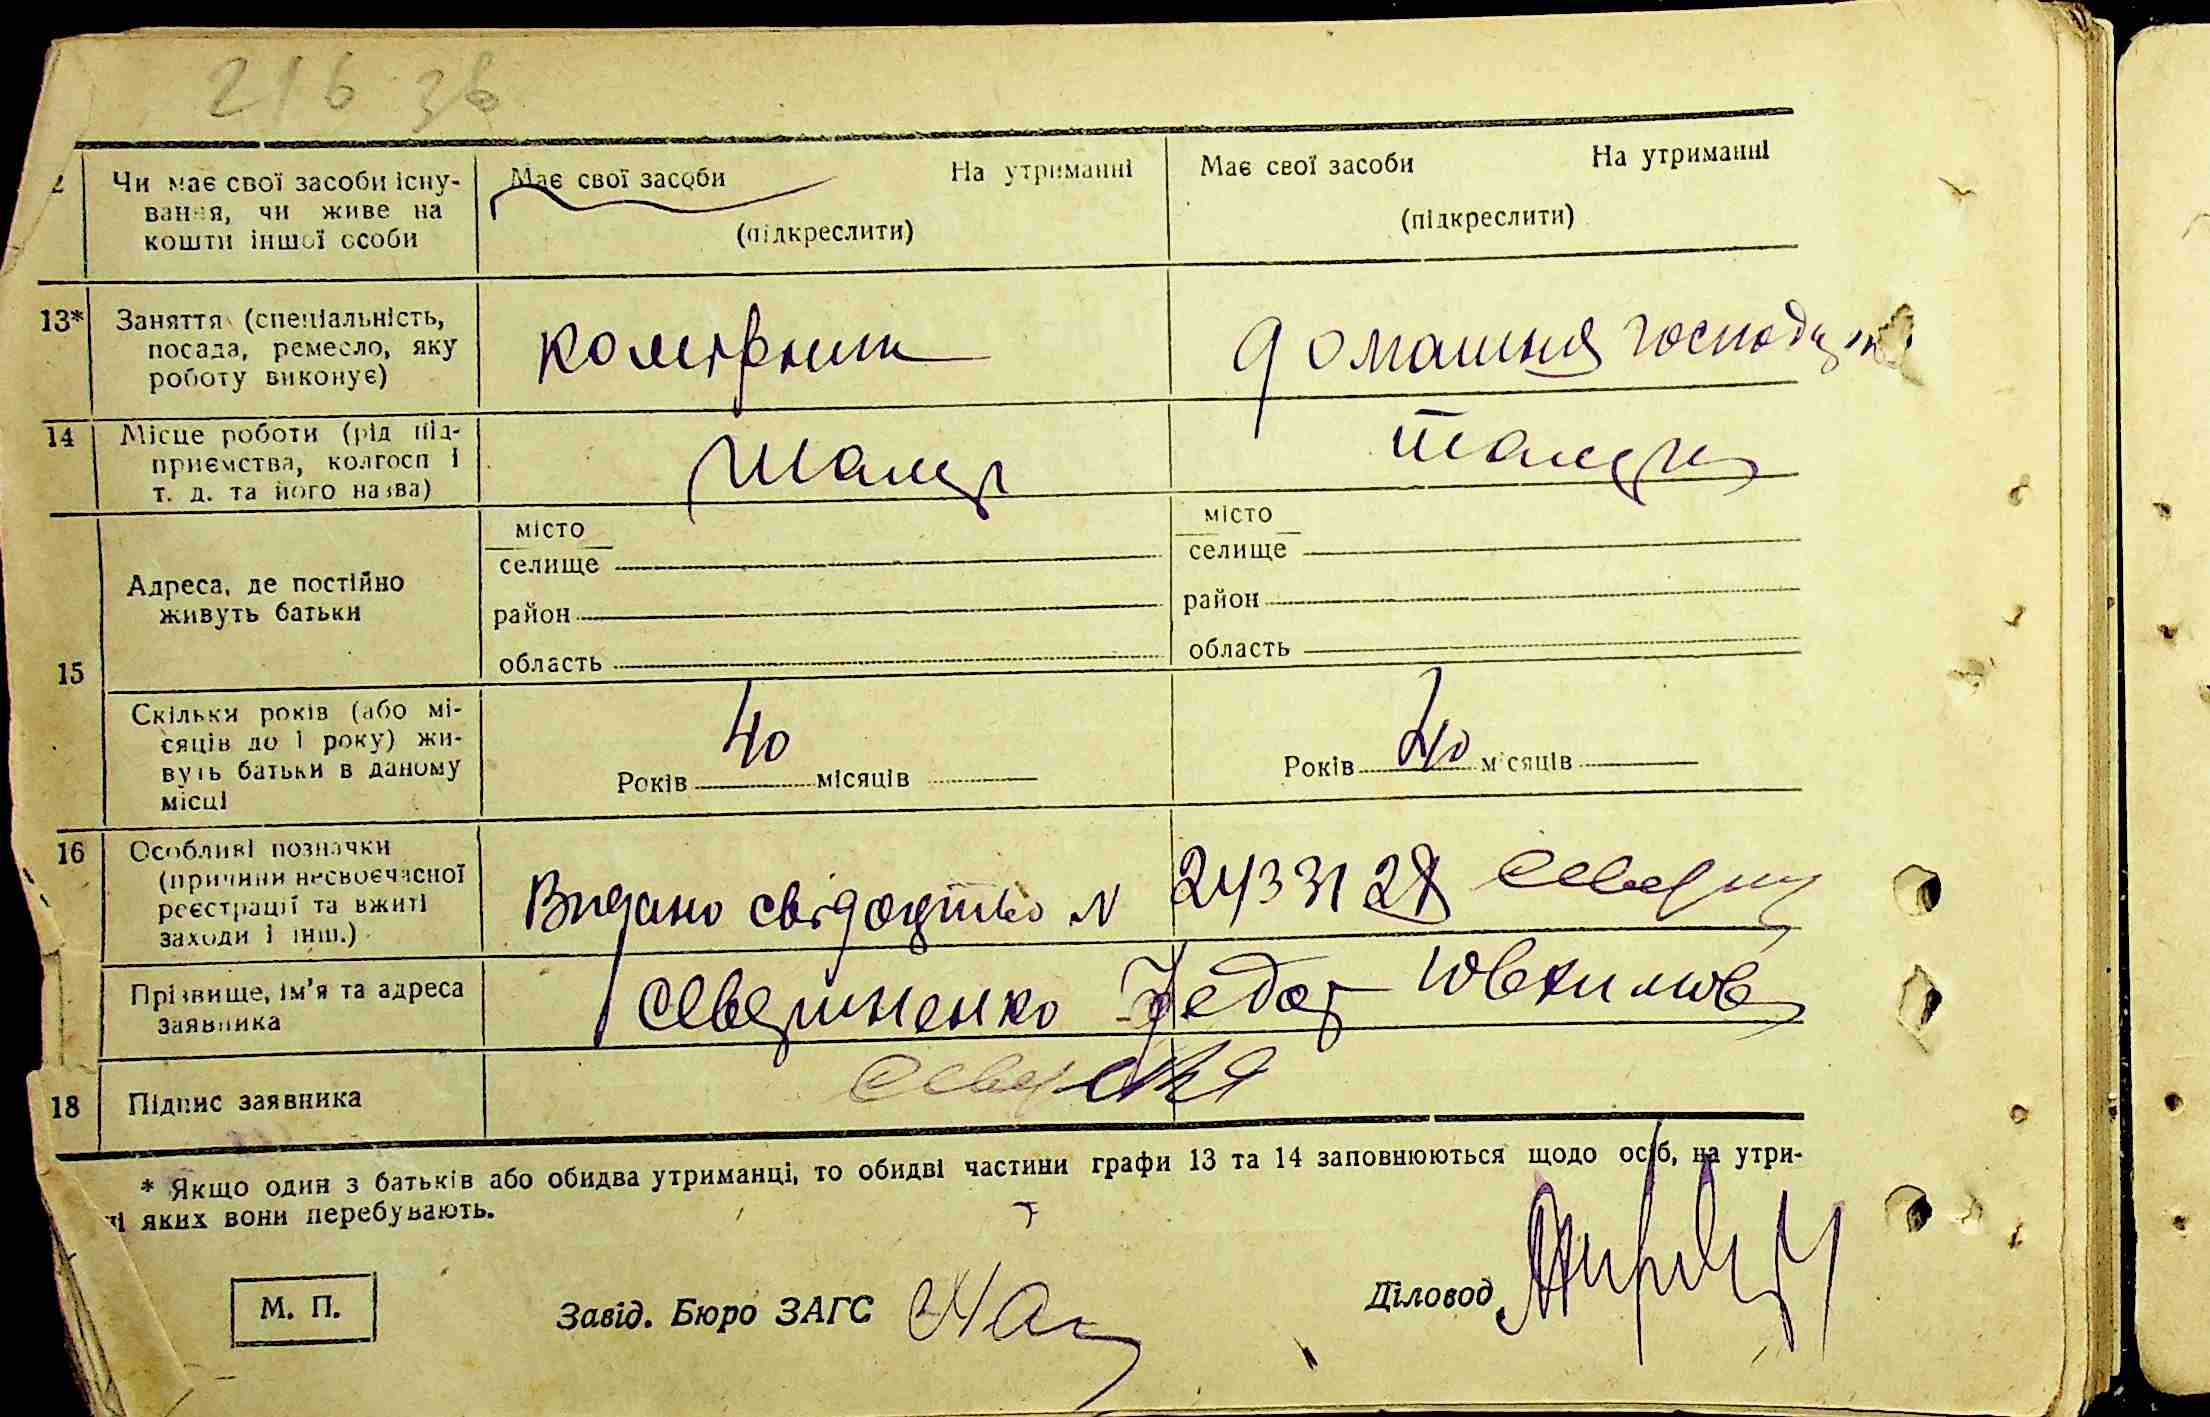 216 36
Чи має свої засоби існу-
вання, чи живе на
кошти іншої особи
Має свої засоби На утриманні
(підкреслити)
Має свої засоби На утриманні
(підкреслити)
13* Заняття (спеціальність,
посада, ремесло, яку
роботу виконує)
комірник
домашня
14 Місце роботи (рід під-
приємства, колгосп і
т. д. та його назва)
15
Адреса, де постійно
живуть батьки
місто
селище
район
область
місто
селище
район
область
Скільки років (або мі-
сяців до 1 року) жи-
вуть батьки в даному
місці
Років 40 місяців
Років 40 місяців
16 Особливі позначки
(причини несвоєчасної
реєстрації та вжиті
заходи і інш.)
Видано свідоцтво N 2433128
Прізвище, ім'я та адреса
заявника
Севериненко Федот
18 Підпис заявника
* Якщо один з батьків або обидва утриманці, то обидві частини графи 13 та 14 заповнюються щодо осіб, на утри-
ні яких вони перебувають.
М. П.
Завід. Бюро ЗАГС
Діловод